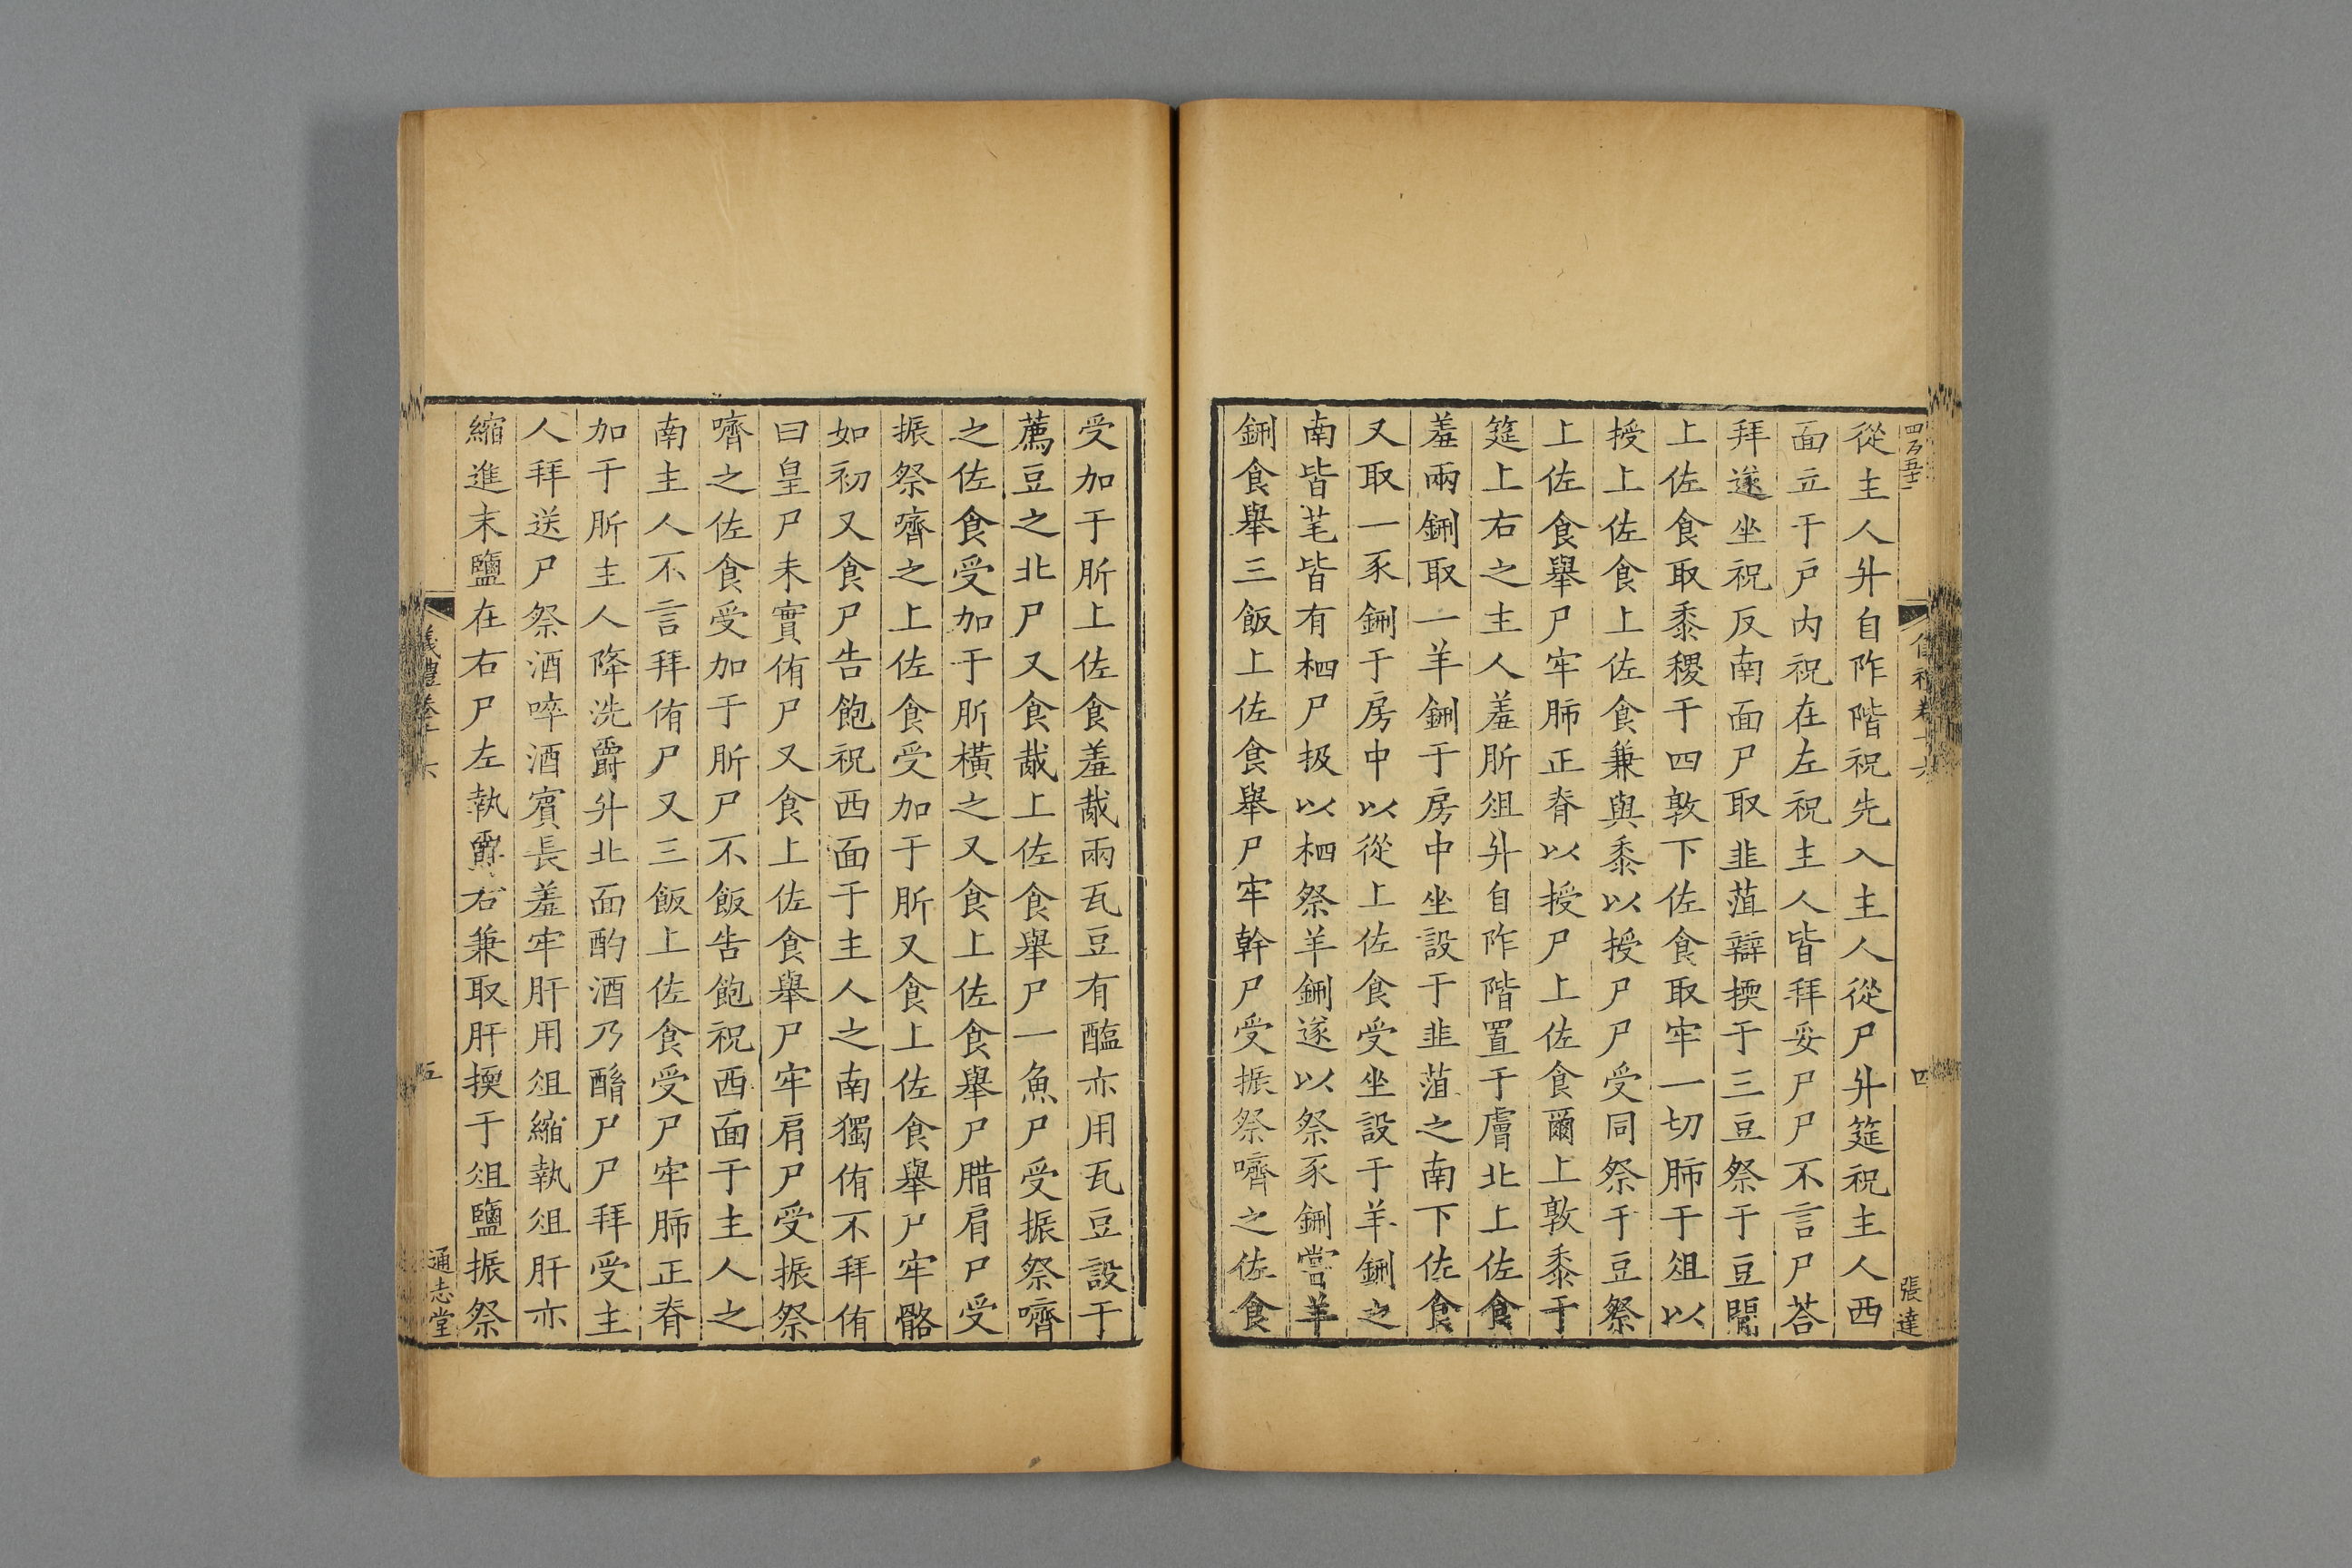 四百五十二
從主人升自阼階祝先入主人從尸升筵祝主人西
面立于戶內祝在左祝主人皆拜妥尸尸不言尸荅
拜遂坐祝反南面尸取韭菹辯擩于三豆祭于豆間
上佐食取黍稷于四敦下佐食取牢一切肺于俎以
授上佐食上佐食兼與黍以授尸尸受同祭于豆祭
上佐食舉尸牢肺正脊以授尸上佐食爾上敦黍于
筵上右之主人羞肵俎升自阼階置于膚北上佐食
羞兩鉶取一羊鉶于房中坐設于韭菹之南下佐食
又取一豕鉶于房中以從上佐食受坐設于羊鉶之
南皆芼皆有柶尸扱以柶祭羊鉶遂以祭豕鉶嘗羊
鉶食舉三飯上佐食舉尸牢幹尸受振祭嚌之佐食
四
張達
受加于肵上佐食羞胾兩瓦豆有醢亦用瓦豆設于
薦豆之北尸又食胾上佐食舉尸一魚尸受振祭嚌
之佐食受加于肵橫之又食上佐食舉尸腊肩尸受
振祭嚌之上佐食受加于肵又食上佐食舉尸牢骼
如初又食尸告飽祝西面于主人之南獨侑不拜侑
曰皇尸未實侑尸又食上佐食舉尸牢肩尸受振祭
嚌之佐食受加于肵尸不飯告飽祝西面于主人之
南主人不言拜侑尸又三飯上佐食受尸牢肺正脊
加于肵主人降洗爵升北面酌酒乃酳尸尸拜受主
人拜送尸祭酒啐酒賓長羞牢肝用俎縮執俎肝亦
縮進末鹽在右尸左執爵右兼取肝擩于俎鹽振祭
儀禮卷十六
五
通志堂